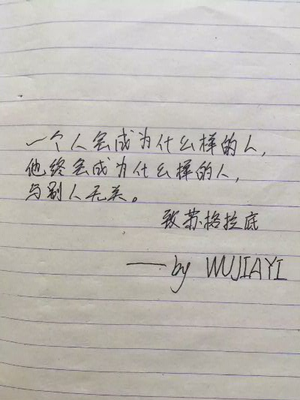 一个人会成为什么样的人，
他终会成为什么样的人，
与别人无关。
致苏格拉底
——by WUJIAYI